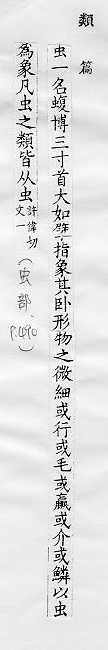 類篇
虫一名蝮博三寸首大如擘指象其卧形物之微細或行或毛或蠃或介或鱗以虫
為象凡虫之類皆从虫許偉切文一
(虫部、P.490)